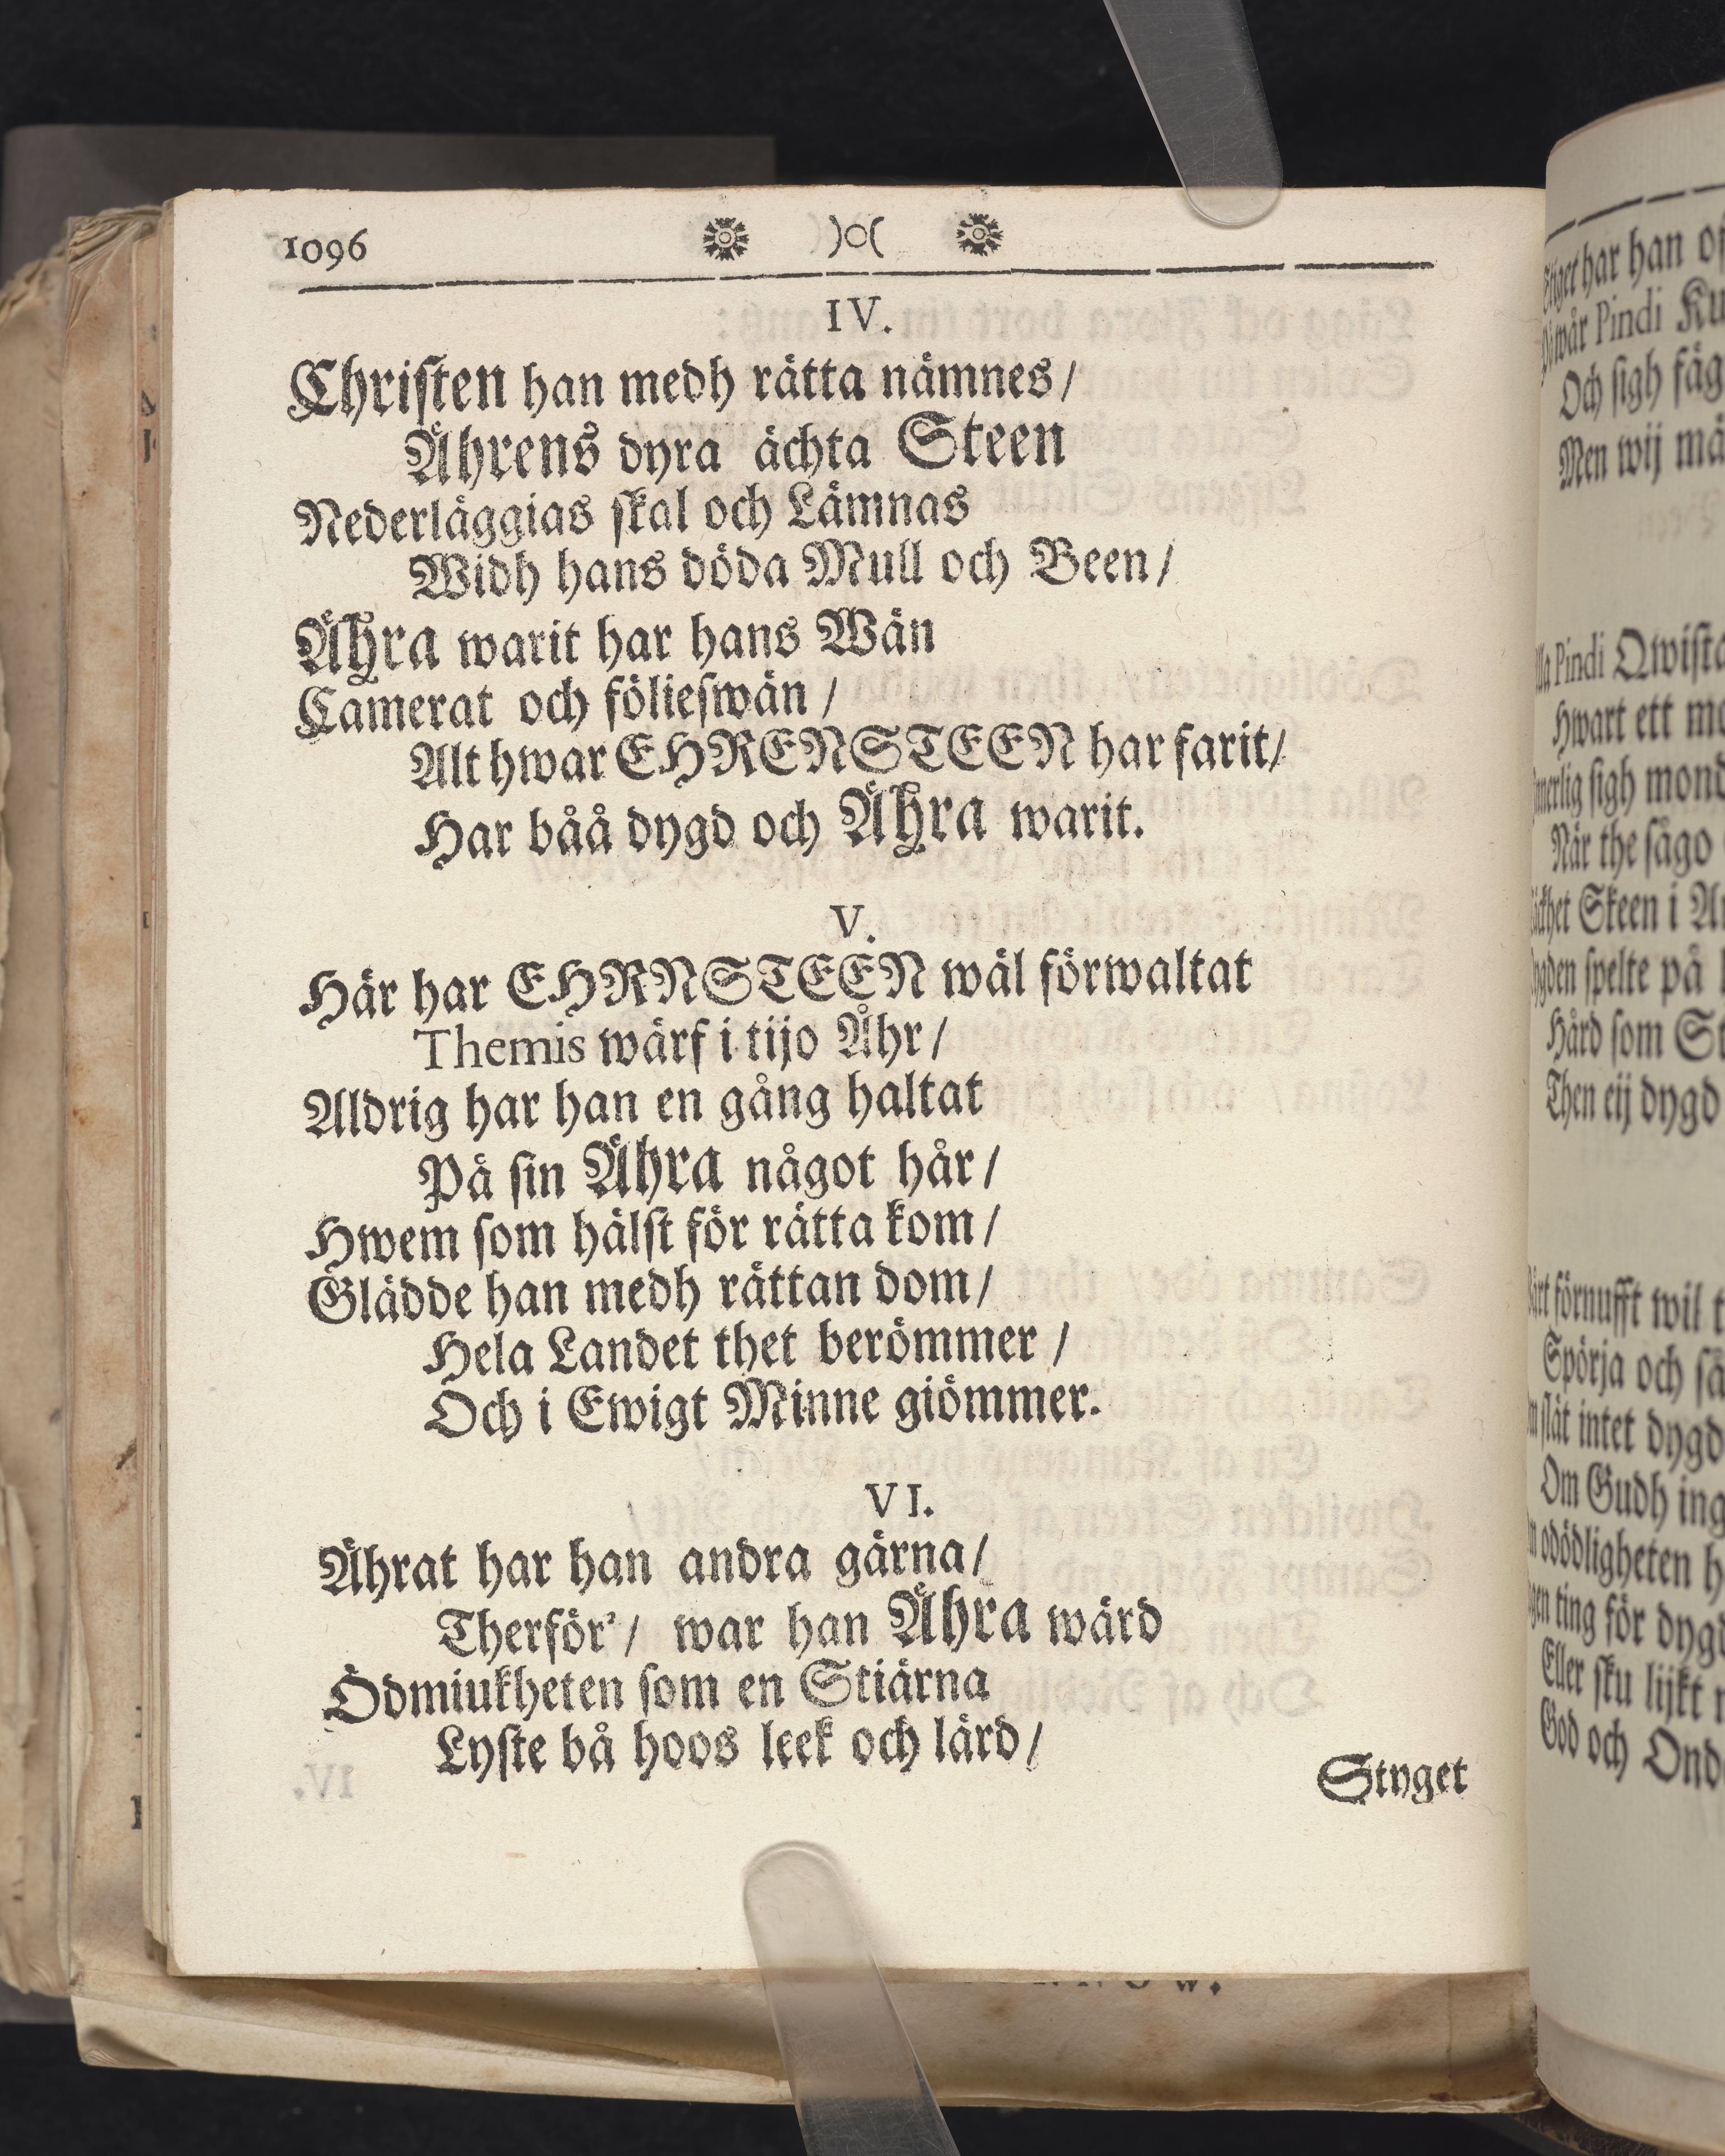 1096 )o(
IV.
Christen han medh rätta nämnes/
Ährens dyra ächta Steen
Nederläggias skal och Lämnas
Widh hans döda Mull och Been/
Ähra warit har hans Wän
Camerat och fölieswän /
Alt hwar EHRENSTEEN har farit/
Har båå dygd och Ähra warit.
V.
Här har EHRNSTEEN wäl förwaltat
Themis wärf i tijo Åhr/
Aldrig har han en gång haltat
På sin Ähra något hår/
Hwem som hälst för rätta kom/
Glädde han medh rättan dom/
Hela Landet thet berömmer /
Och i Ewigt Minne giömmer.
VI.
Ährat har han andra gärna/
Therför'/ war han Ähra wärd
Ödmiukheten som en Stiärna
Lyste bå hoos leek och lärd/
Styget
har han
wår Pindi
Och sigh
Men wij
Pindi
Hwart ett
sigh
När the sågo
Skeen i
spelte på
Hård som
Then eij dygd
förnufft wil
Spörja och
intet
Om Gudh
odödligheten
ting för
Eller sku lijkt
God och